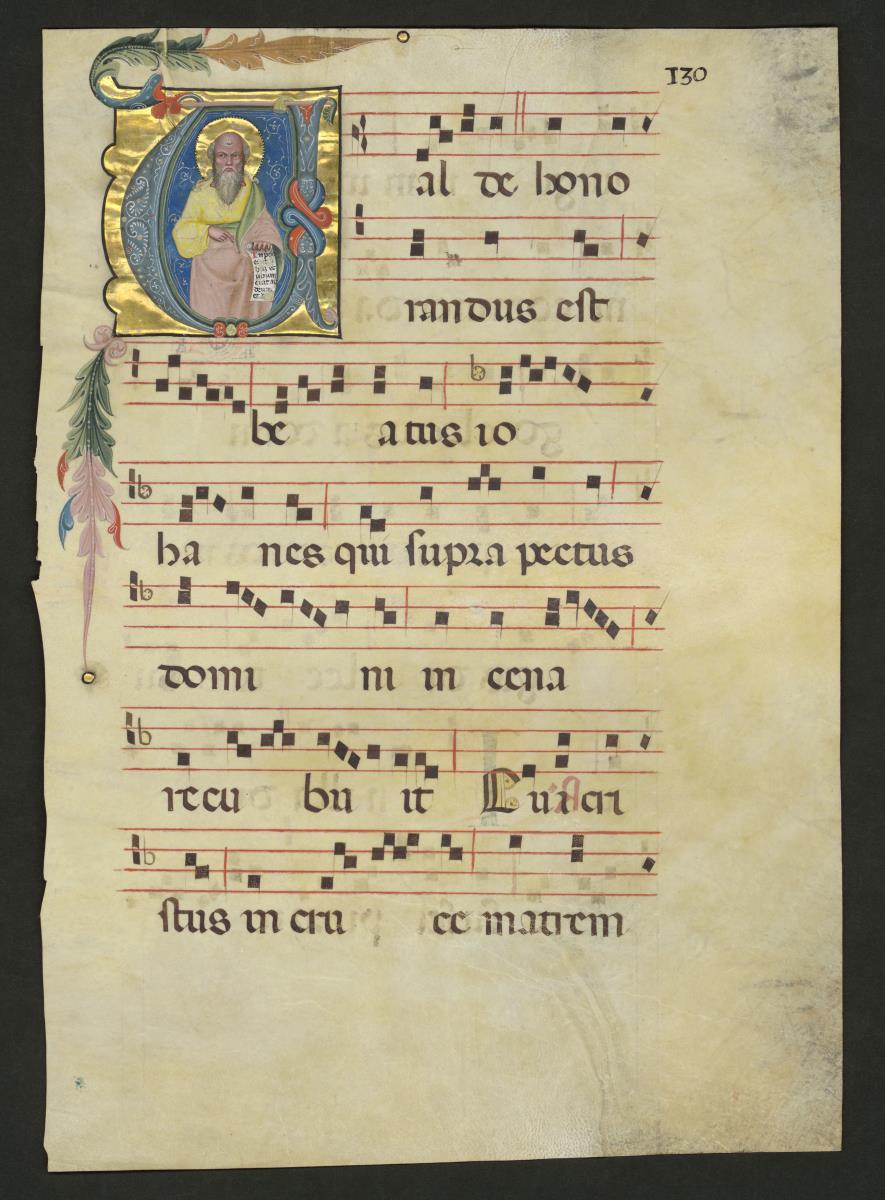 130
Val de hono
randus est
be atus io
ha nes qui supra pectus
domi ni in cena
recu bu it Cui cri
stus in cru ce matrem